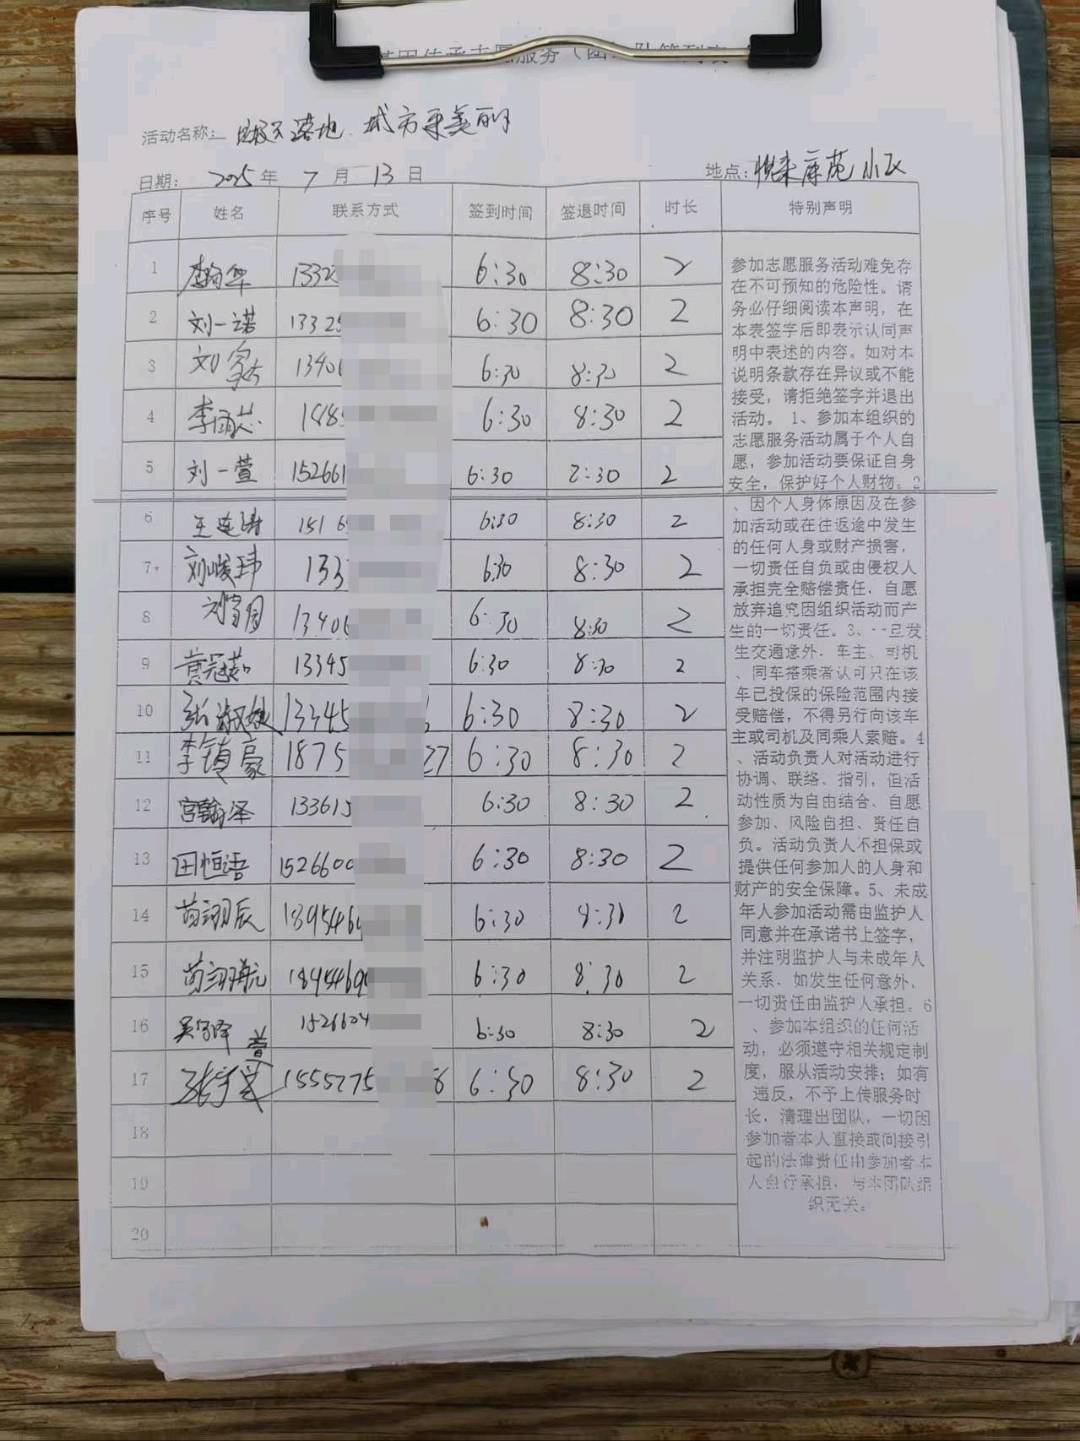 基因传承志愿服务（团）队签到表
活动名称： 垃圾不落地 城市更美丽
日期： 2025 年 7 月 13 日 地点： 悦来康苑小区
序号 姓名 联系方式 签到时间 签退时间 时长 特别声明
1 1332 6:30 8:30 2
2 刘一诺 13325 6:30 8:30 2
3 13406 6:30 8:30 2
4 6:30 8:30 2
5 刘一萱 152661 6:30 8:30 2
6 王连涛 6:30 8:30 2
7 刘峻玮 133 6:30 8:30 2
8 13406 6:30 8:30 2
9 黄冠茹 13345 6:30 8:30 2
10 张淑媛 13345 6:30 8:30 2
11 李镇豪 1875 27 6:30 8:30 2
12 宫翰泽 133615 6:30 8:30 2
13 田恒语 1526600 6:30 8:30 2
14 苗翊辰 6:30 8:30 2
15 苗翊航 6:30 8:30 2
16 1526604 6:30 8:30 2
17 1555275 6:30 8:30 2
18
19
20
参加志愿服务活动难免存
在不可预知的危险性。请
务必仔细阅读本声明，在
本表签字后即表示认同声
明中表述的内容。如对本
说明条款存在异议或不能
接受，请拒绝签字并退出
活动。 1、参加本组织的
志愿服务活动属于个人自
愿，参加活动要保证自身
安全，保护好个人财物。2
、因个人身体原因及在参
加活动或在往返途中发生
的任何人身或财产损害，
一切责任自负或由侵权人
承担完全赔偿责任，自愿
放弃追究因组织活动而产
生的一切责任。3、一旦发
生交通意外，车主、司机
、同车搭乘者认可只在该
车已投保的保险范围内接
受赔偿，不得另行向该车
主或司机及同乘人索赔。4
、活动负责人对活动进行
协调、联络、指引，但活
动性质为自由结合、自愿
参加、风险自担、责任自
负。活动负责人不担保或
提供任何参加人的人身和
财产的安全保障。5、未成
年人参加活动需由监护人
同意并在承诺书上签字，
并注明监护人与未成年人
关系，如发生任何意外，
一切责任由监护人承担。6
、参加本组织的任何活
动，必须遵守相关规定制
度，服从活动安排；如有
违反，不予上传服务时
长，清理出团队，一切因
参加者本人直接或间接引
起的法律责任由参加者本
人自行承担，与本团队组
织无关。